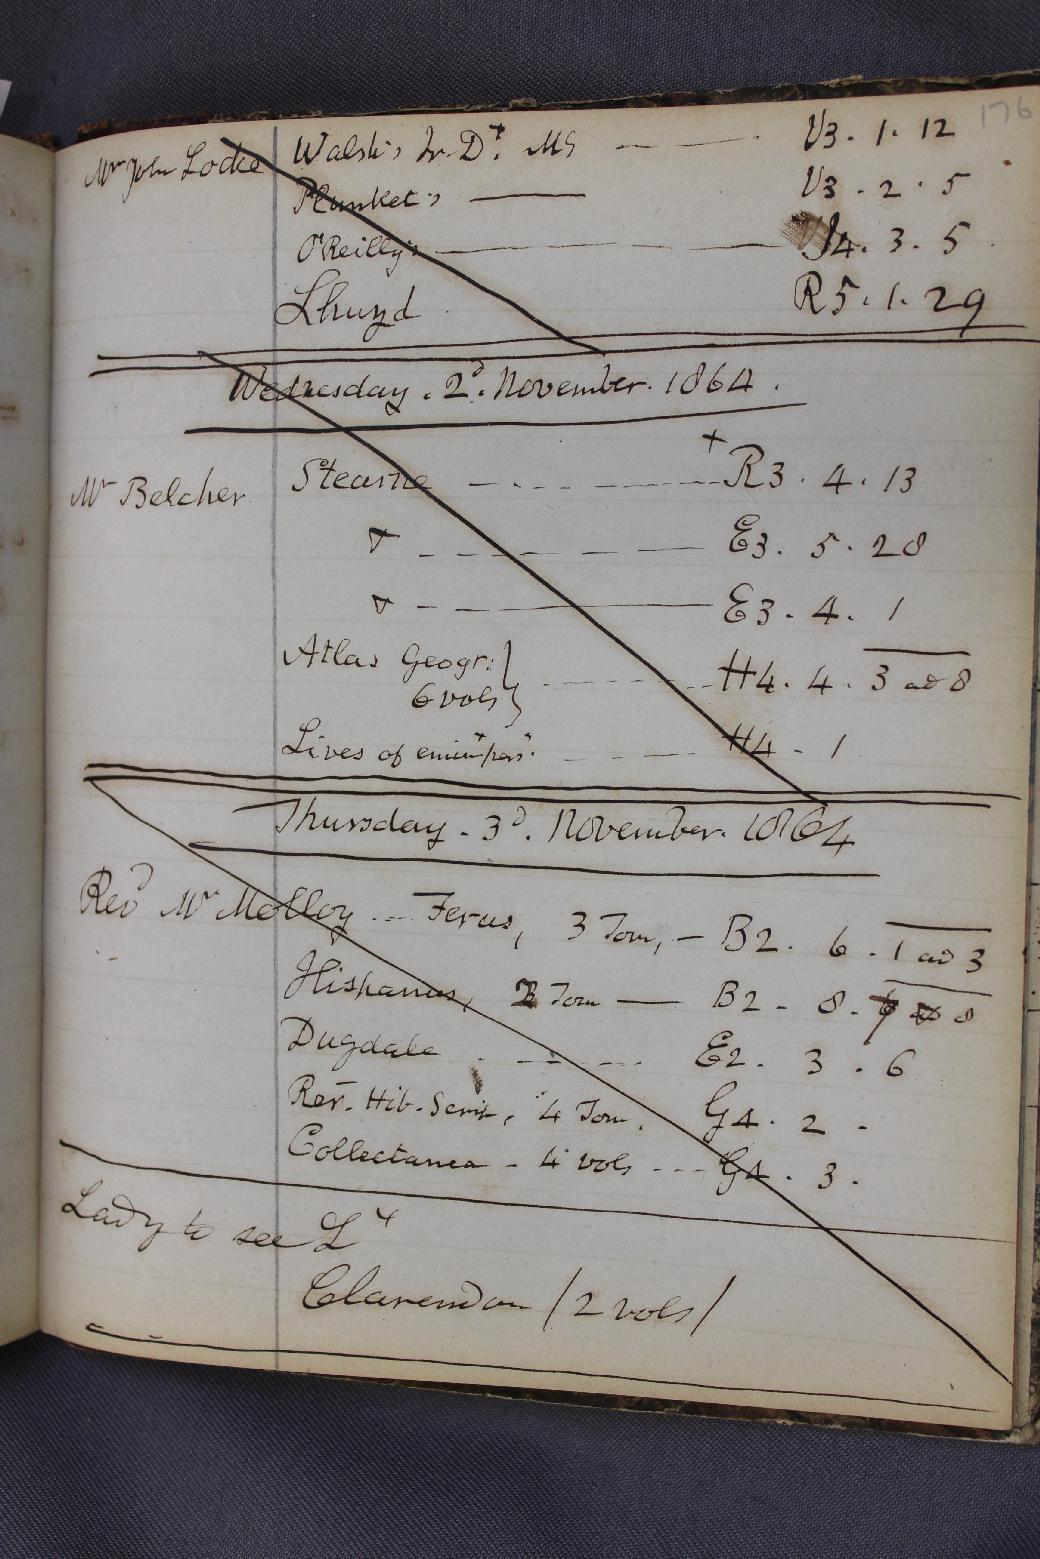 176
Mr John Locke Walsh's Ir. Dt. MS V3. 1. 12
Plunket's V3. 2. 5
O'Reilly's 4. 3. 5
Lhuyd R5. 1. 29
Wednesday. 2d. November. 1864.
Mr Belcher Stearne + R3. 4. 13
E3. 5. 28
E3. 4. 1
Atlas Geogr: 6 vols H4. 4. 3 ad 8
Lives of emint pers H4 - 1
Thursday - 3d. November. 1864
Revd Mr Molloy Ferus, 3 Tom, B2. 6. 1 ad 3
Hispanus, Tom B2 - 8. 8
Dugdale E2. 3. 6
Rer. Hib. Scrip, 4 Tom. G4. 2 -
Collectanea - 4 vols G4. 3.
Lady to see Ld
Clarendon / 2 vols /